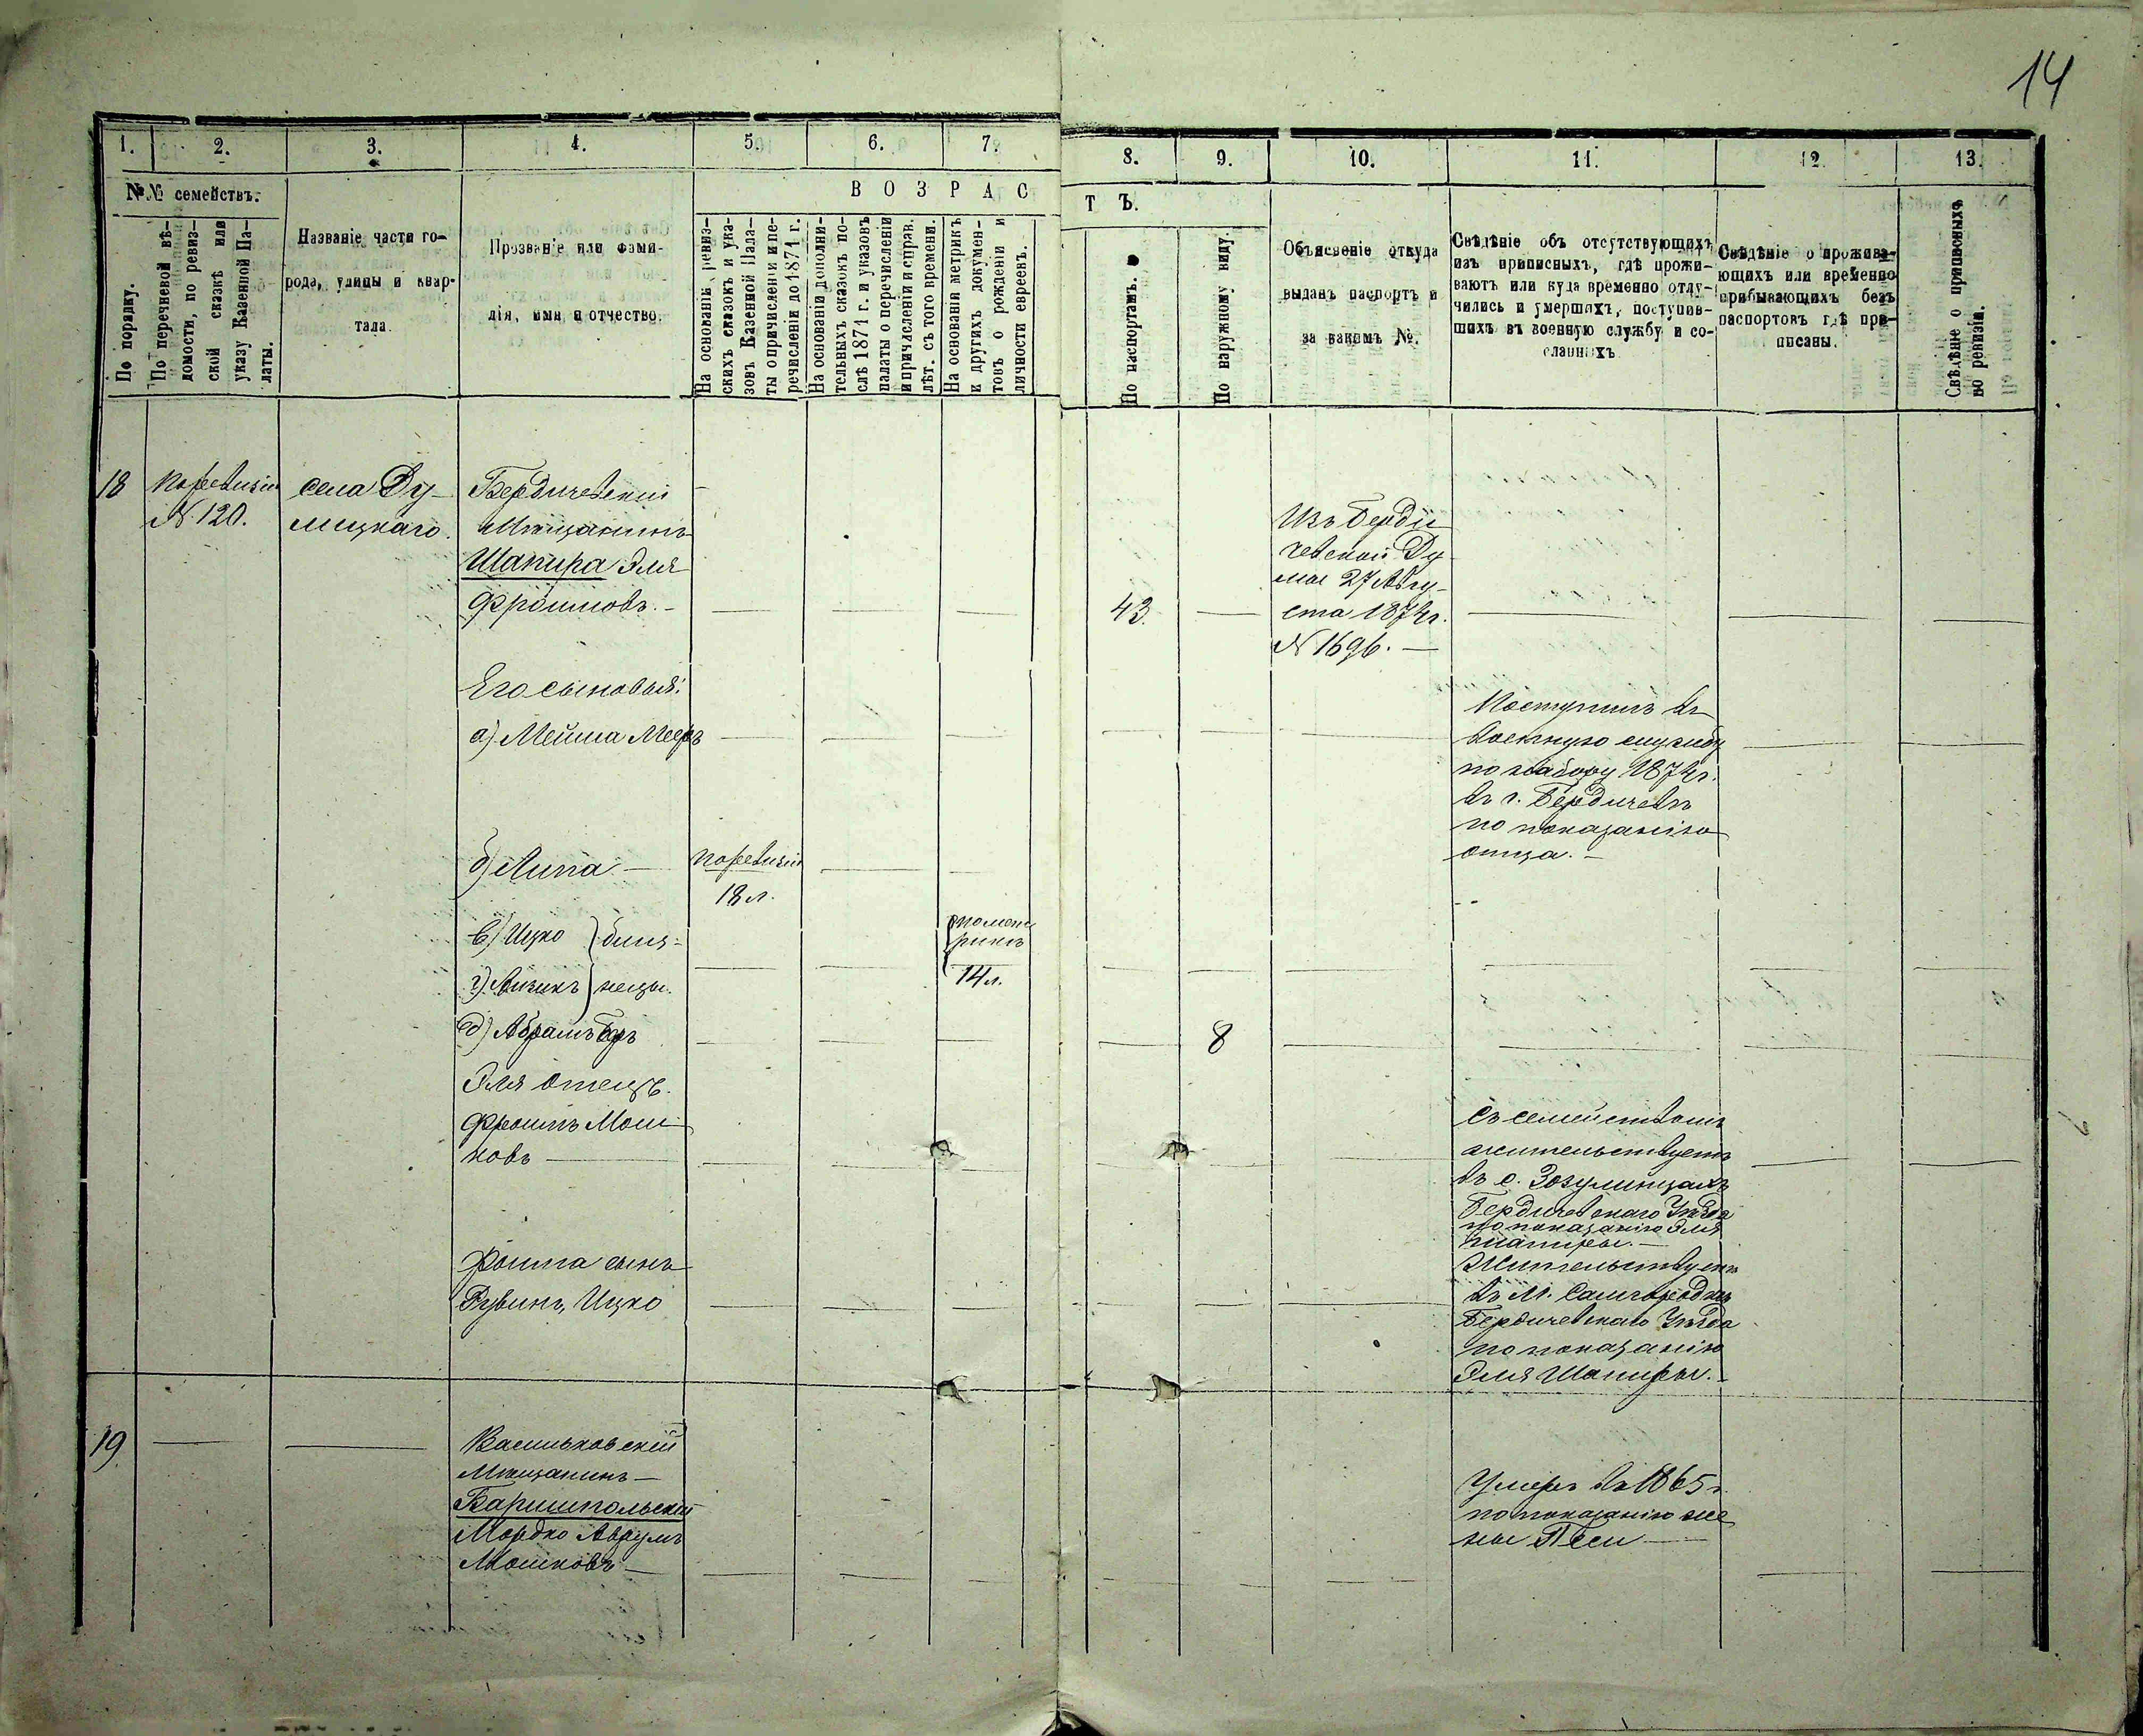 14
1. 2. 3. 4. 5. 6. 7. 8. 9. 10. 11. 12. 13.
№№ семействъ.
По порядку.
По перечневой вѣ-
домости, по ревиз-
ской сказкѣ или
указу Казенной Па-
латы.
Названіе части го-
рода, улицы и квар-
тала.
Прозваніе или фами-
лія, имя и отчество.
ВОЗРАСТЪ.
На основаніи ревиз-
скихъ сказокъ и ука-
зовъ Казенной Пала-
ты о причисленіи и пе-
речисленіи до 1871 г.
На основаніи дополни-
тельныхъ сказокъ по-
слѣ 1871 г. и указовъ
палаты о перечисленіи
и причисленіи и справ.
лѣт. съ того времени.
На основаніи метрикъ
и другихъ докумен-
товъ о рожденіи и
личности евреевъ.
По паспортамъ.
По наружному виду.
Объясненіе откуда
выданъ паспортъ и
за какимъ №.
Свѣдѣніе объ отсутствующихъ
изъ приписныхъ, гдѣ прожи-
ваютъ или куда временно отлу-
чились и умершихъ, поступив-
шихъ въ военную службу и со-
сланныхъ.
Свѣдѣніе о прожива-
ющихъ или временно
прибывающихъ безъ
паспортовъ гдѣ при-
писаны.
Свѣдѣніе о приписныхъ
по ревизіи.
18
по ревизіи
№ 120.
села Ду-
лицкаго.
Бердичевскій
Мѣщанинъ
Шапира Эля
Фроимовъ.
43.
Изъ Берди
чевской Ду
мы 27 Авгу-
ста 1874 г.
№ 1696.
Его сыновья:
а) Мейша Мееръ
Поступилъ въ
военную службу
по набору 1874 г.
въ г. Бердичевѣ
по показанію
отца.
б) Липа
по ревизіи
18 л.
в) Ицко } близ-
г) Айзикъ } нецы.
по мет
рикѣ
14 л.
д) Абрамъ Беръ
8
Эля отецъ
Фроимъ Мош
ковъ
Съ семействомъ
жительствуетъ
въ с. Зозулинцахъ
Бердичевскаго Уѣзда
по показанію Эля
Шапиры.
Фроима сынъ
Рувинъ, Ицко
Жительствуетъ
въ М. Самгородкѣ
Бердичевскаго Уѣзда
по показанію
Эля Шапиры.
19
Васильковскій
Мѣщанинъ
Баришпольскій
Мордко Аврумъ
Мошковъ
Умеръ въ 1865 г.
по показанію же
ны Песи